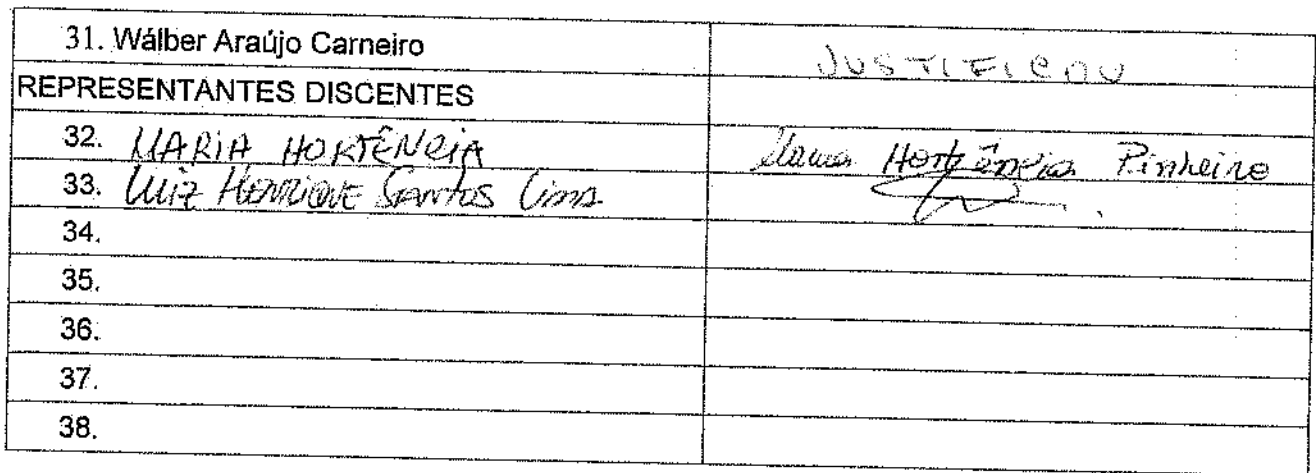 31. Wálber Araújo Carneiro JUSTIFICOU
REPRESENTANTES DISCENTES
32. MARIA HORTÊNCIA Maria Hortência Pinheiro
33. Luiz Henrique Santos Lima
34.
35.
36.
37.
38.